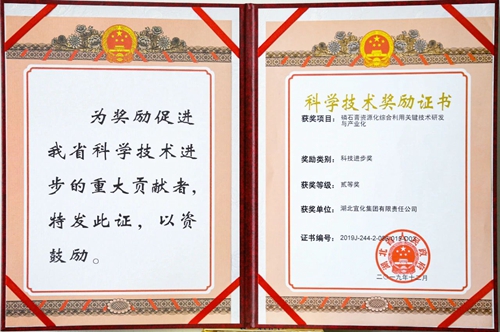 为奖励促进
我省科学技术进
步的重大贡献者，
特发此证，以资
鼓励。
科学技术奖励证书
获奖项目：磷石膏资源化综合利用关键技术研发
与产业化
奖励类别：科技进步奖
获奖等级：贰等奖
获奖单位：湖北宜化集团有限责任公司
证书编号：2019J-244-2-
湖北省人民政府
二〇一九年十二月